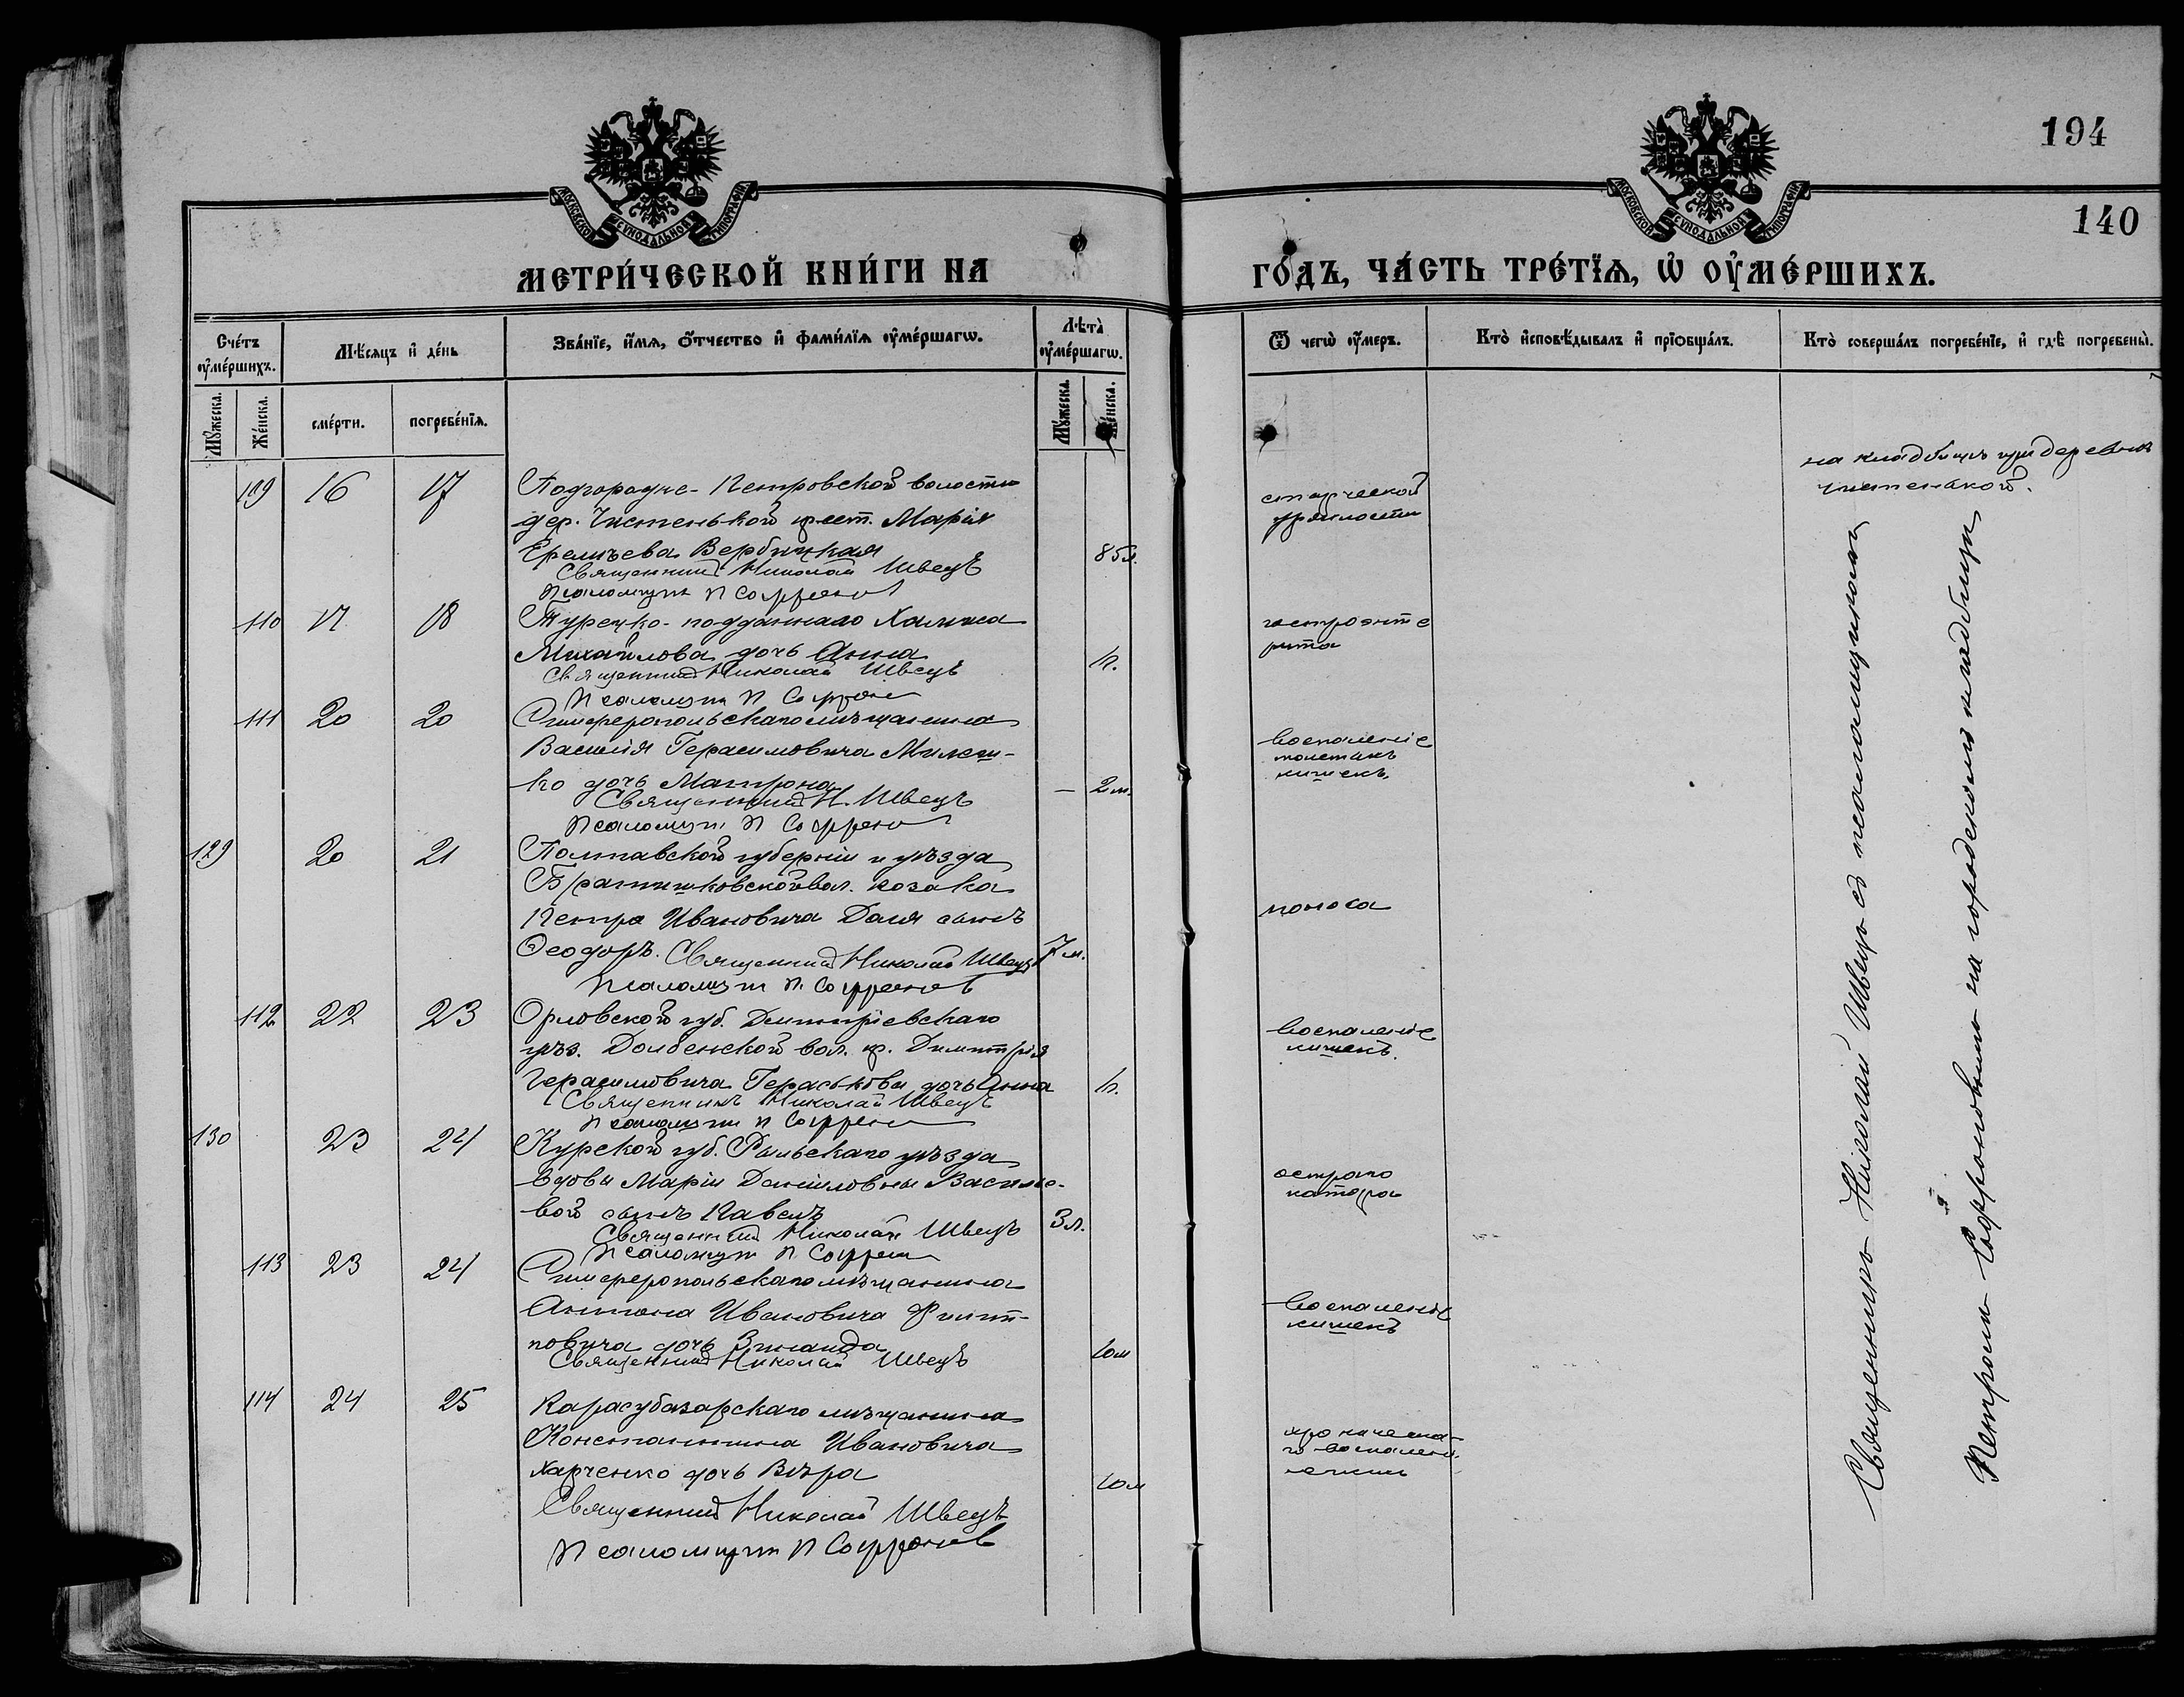 194
140
МОСКОВСКОЙ СѴНОДАЛЬНОЙ ТИПОГРАФІИ
МОСКОВСКОЙ СѴНОДАЛЬНОЙ ТИПОГРАФІИ
МЕТРИ́ЧЕСКОЙ КНИ́ГИ НА
ГО́ДЪ, ЧА́СТЬ ТРЕ́ТЇѦ, Ѡ҆ ОУ҆МЕ́РШИХЪ.
Сче́тъ оу҆ме́ршихъ.
Мѣ́сѧцъ и҆ де́нь
Зва́нїе, и҆́мѧ, ѻ҆́тчество и҆ фами́лїѧ оу҆ме́ршагѡ.
Лѣ́та оу҆ме́ршагѡ.
Ѿ чегѡ̀ оу҆́меръ.
Кто̀ и҆сповѣ́дывалъ и҆ прїѡбща́лъ.
Кто̀ соверша́лъ погребе́нїе, и҆ гдѣ̀ погребены̀.
Мꙋ́жеска.
Же́нска.
сме́рти.
погребе́нїѧ.
Мꙋ́жеска.
Же́нска.
109 16 17 Подгородне-Петровской волости
дер. Чистенькой крест. Марія
Вербицкая 85 л.
Священникъ Николай Швецъ
Псаломщик П Софронов
старческой
дряхлости
на кладбищѣ при деревнѣ
Чистенькой.
110 17 18 Турецко-подданнаго
Михайлова дочь Анна 1 г.
Священникъ Николай Швецъ
Псаломщик П Софронов
гастроэнте
рита
111 20 20 Симферопольскаго мѣщанина
Василія Герасимовича Милеш-
ко дочь Матрона — 2 м.
Священникъ Н. Швецъ
Псаломщик П Софронов
воспаленіе
толстыхъ
кишекъ
129 20 21 Полтавской губерніи и уѣзда
Братешковской вол. козака
Петра Ивановича Даля сынъ
Ѳеодоръ. Священникъ Николай Швецъ 7 м.
Псаломщик П. Софронов
поноса
112 22 23 Орловской губ. Дмитріевскаго
уѣз. Долбенской вол. кр. Димитрія
Герасимовича Гераськова дочь Анна 1 г.
Священникъ Николай Швецъ
Псаломщик П Софронов
воспаленіе
кишекъ.
130 23 24 Курской губ. Рыльскаго уѣзда
вдовы Маріи Даніиловны Василье-
вой сынъ Павелъ 3 л.
Священникъ Николай Швецъ
Псаломщик П Софронов
остраго
катара
113 23 24 Симферопольскаго мѣщанина
Антона Ивановича Филип-
повича дочь Зинаида 10 м
Священникъ Николай Швецъ
воспаленіе
кишекъ
114 24 25 Карасубазарскаго мѣщанина
Константина Ивановича
Харченко дочь Вѣра 10 м
Священникъ Николай Швецъ
Псаломщик П Софронов
хроническа-
го воспален.
Священникъ Николай Швецъ съ псаломщикомъ
Петромъ Софроновымъ на городскомъ кладбищѣ